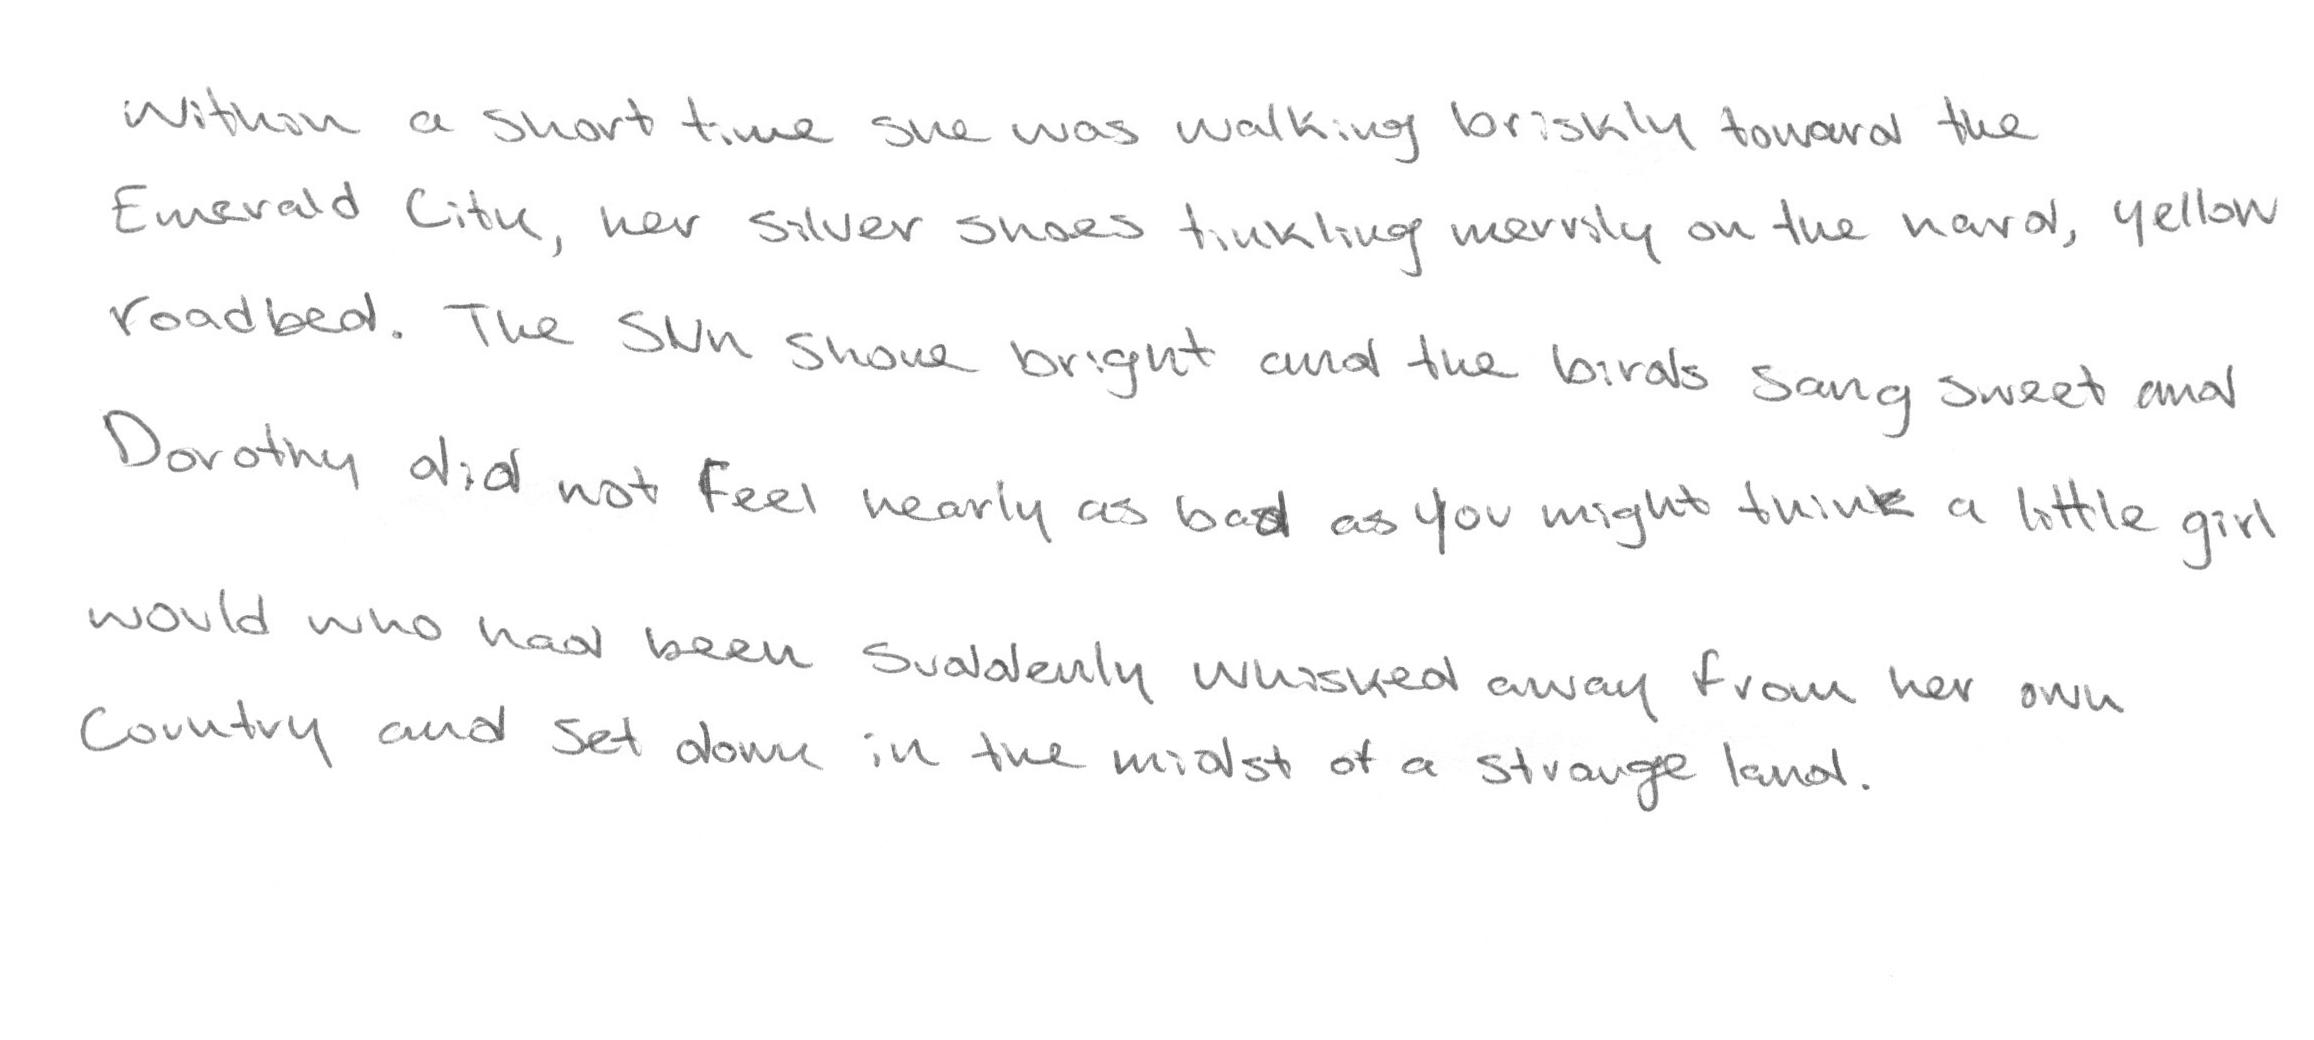 Within a short time she was walking briskly toward the
Emerald City, her silver shoes tinkling merrily on the hard, yellow
roadbed. The sun shone bright and the birds sang sweet and
Dorothy did not feel nearly as bad as you might think a little girl
would who had been suddenly whisked away from her own
country and set down in the midst of a strange land.